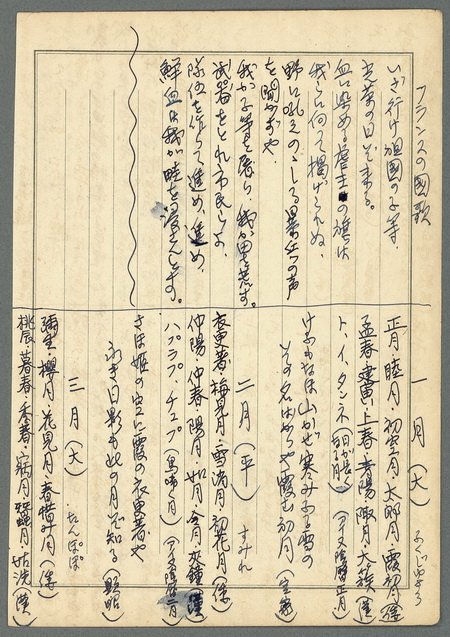 フランスの國歌
いざ行け祖國の子等、
光榮の日ぞ来る。
血に染める虐主の旗は
我らに向て揚げられぬ、
野に吼えのゝしる暴兵の声
を聞かずや
我が子等を屠り我が畑を荒す。
武器をとれ市民らよ
隊伍を作りて進め、進め、
鮮血は我が畦を浸さんとす。
一月(大) ふくじゆそう
正月・睦月・初空月・太郎月・霞初月(傣
孟春・建寅・上春・青陽・陬月・大簇(漢
ト、イ、タンネ(日が長く月)(アイヌ陰暦正月)
けふもなほ山かぜ寒みふる雪の
その名はからや霞む初月(定家)
二月(平) すみれ
衣更着・梅見月・雪消月・初花月(傣
仲陽・仲春・陽月・如月・令月・夾鐘(漢
ハプラプ、チユプ(鳥啼く月)(アイヌ陰暦二月)
さほ姫の空に霞の衣更着や
永き日影も此の月ぞ知る(顕昭)
三月(大) たんぽぽ
彌生・櫻月・花見月・春惜み月(傣
桃・暮春・季春・病月・蠶月・姑洗(漢